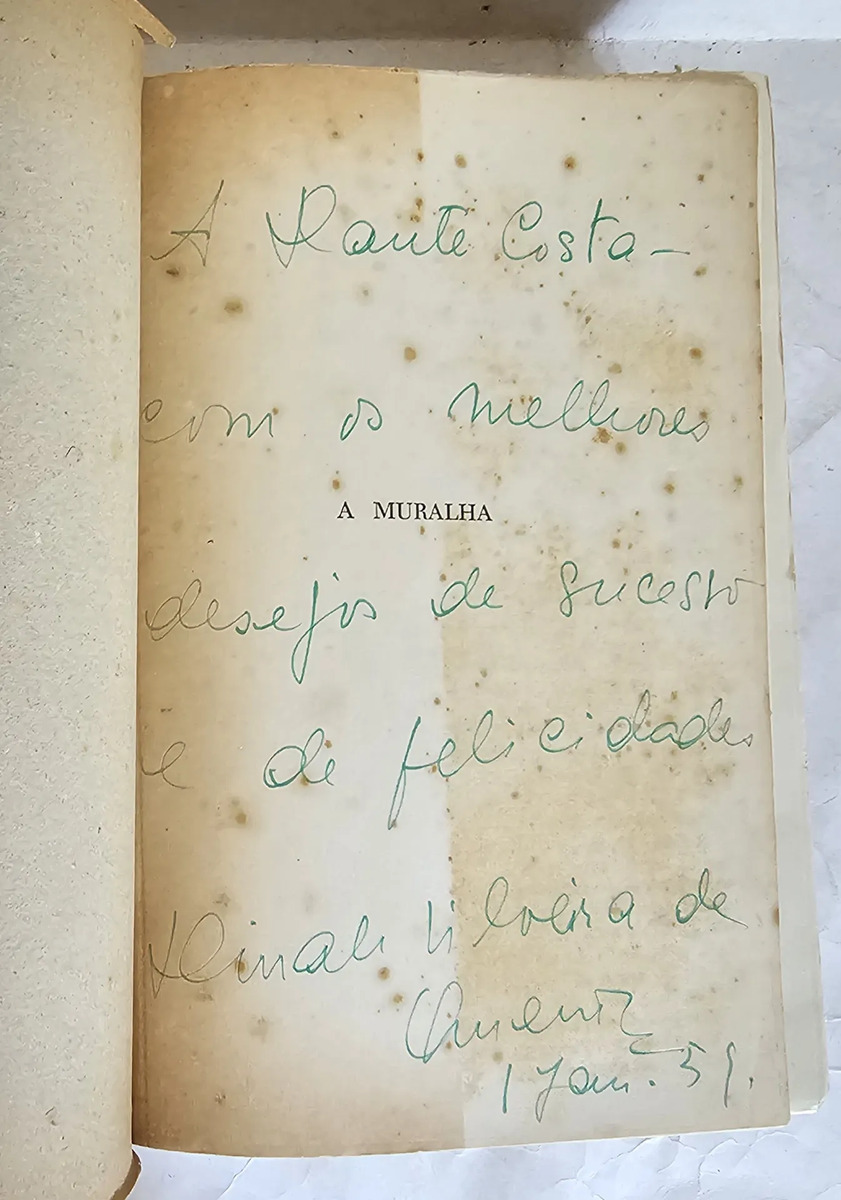 A Dante Costa —
com os melhores
A MURALHA
desejos de sucesso
e de felicidades
Dinah Silveira de
Queiroz
1 Jan. 59.